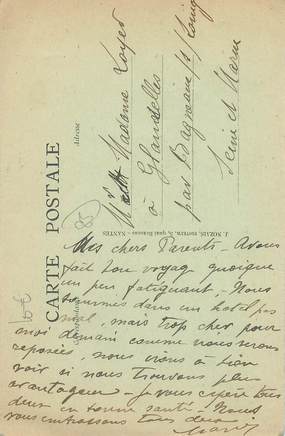 CARTE POSTALE
Adresse
Correspondance
J. NOZAIS, EDITEUR, 3, quai Brancas - NANTES
M. et Madame Loyer
à Glandelles
par Bagneaux s/ Loing
Seine et Marne
Mes chers Parents - Avons
fait bon voyage quoique
un peu fatiguant. Nous
sommes dans un hotel pas
mal, mais trop cher pour
moi demain comme nous serons
reposées, nous irons à bien
voir si nous trouvons plus
avantageux - Je vous espère tous
deux en bonne santé - Nous
vous embrassons tous deux